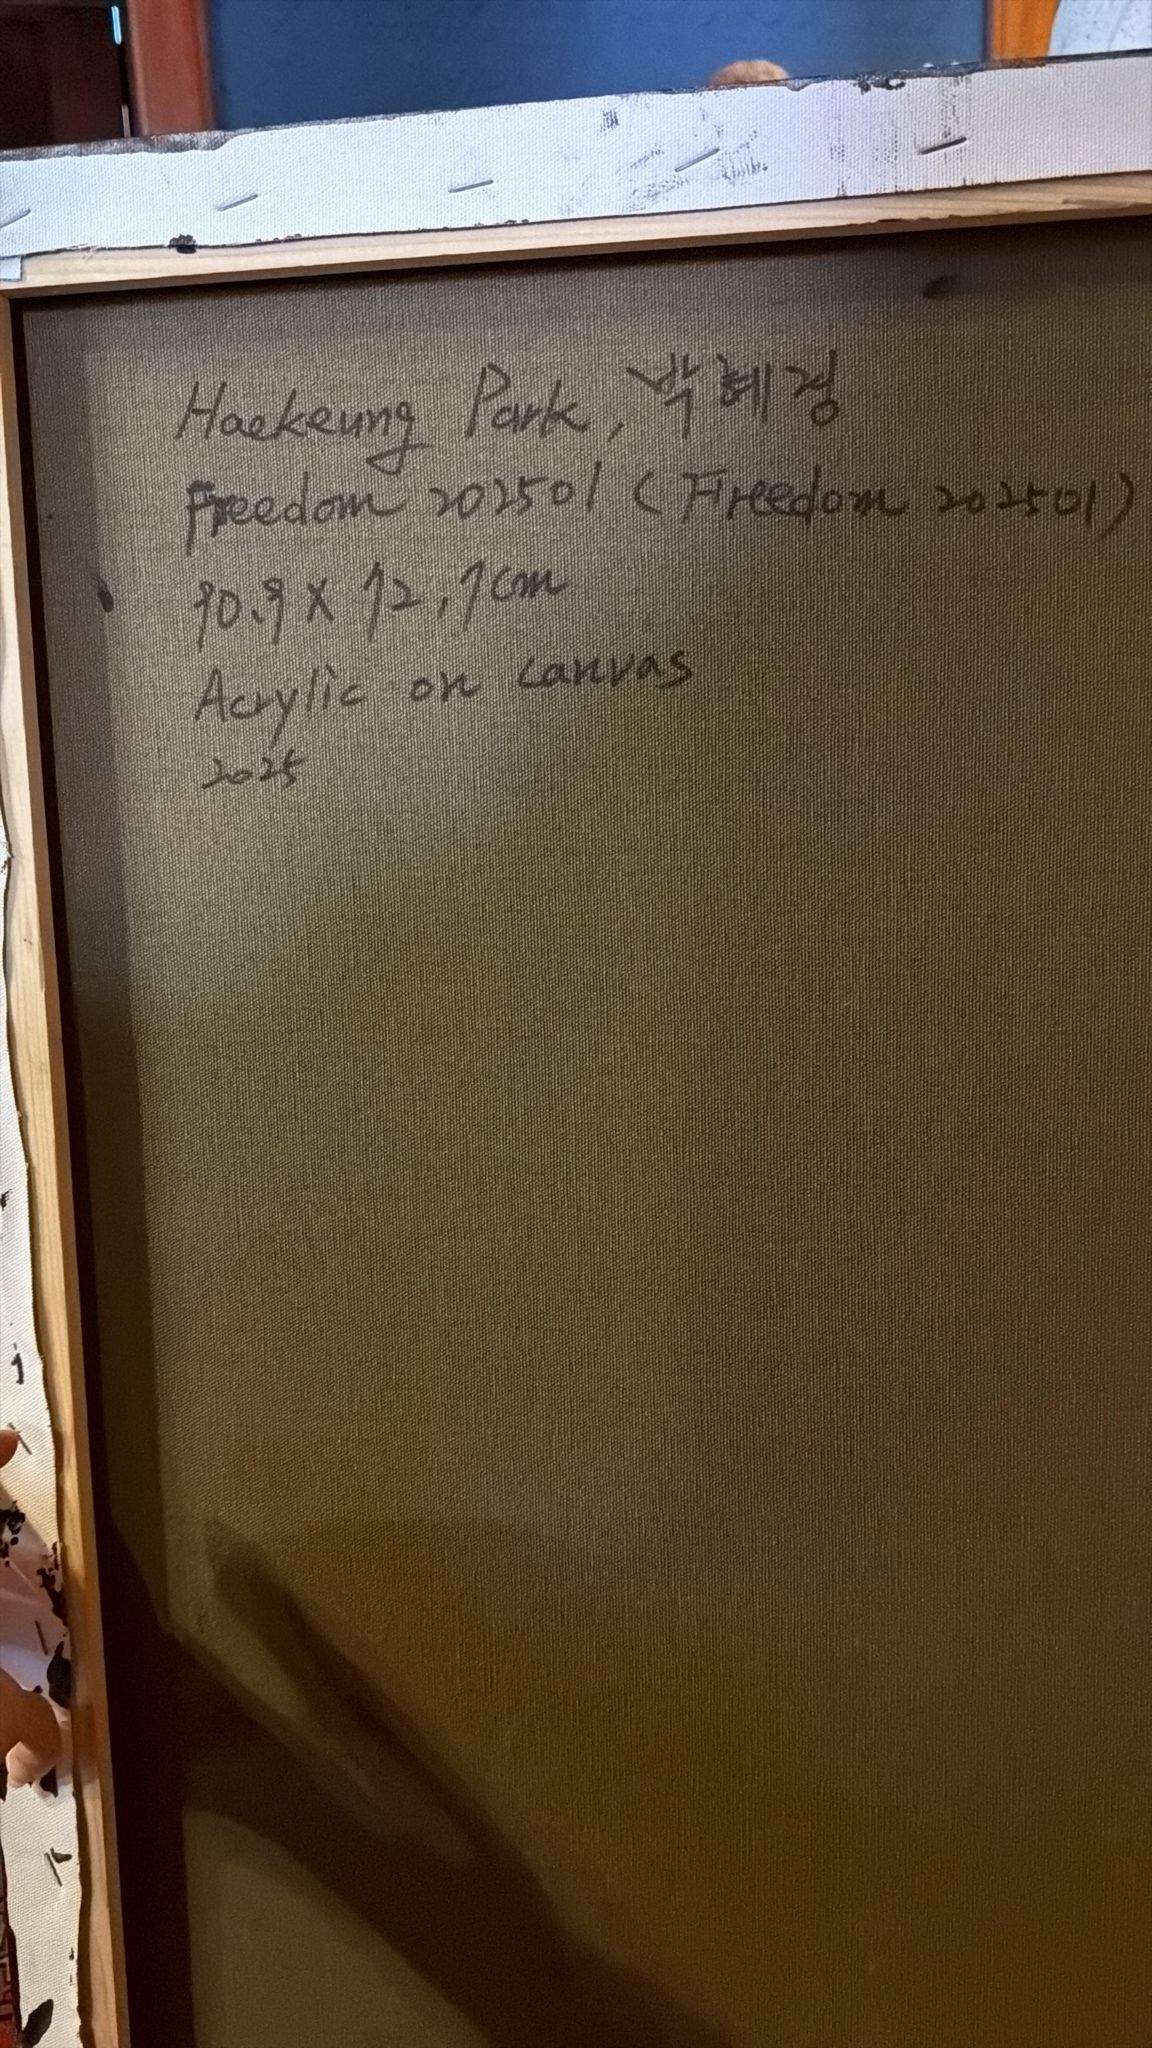 Haekeung Park, 박혜경
Freedom 202501 (Freedom 202501)
90.9 x 72.7cm
Acrylic on canvas
2025